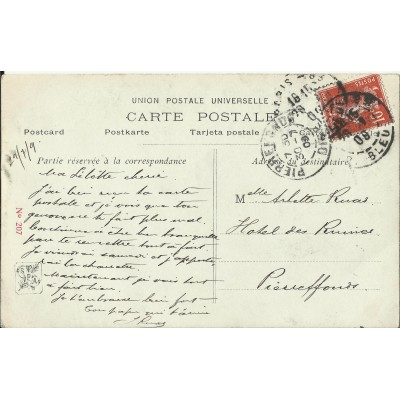 UNION POSTALE UNIVERSELLE
CARTE POSTALE
Postcard Postkarte Tarjeta postale
Partie réservée à la correspondance
Adresse du destinataire
Nº 207
Ma Lilette chérie
J'ai bien reçu ta carte
postale et j'ai vu que ton
le fait plus mal.
Continue à être bien tranquille
pour te remettre tout à fait.
Je viendrai samedi et j'apporterai
Maintenant je vais tout
à fait bien.
Je t'embrasse bien fort
Ton papa qui t'aime
Mlle Arlette Ruas
Hotel des Ruines
Pierrefonds